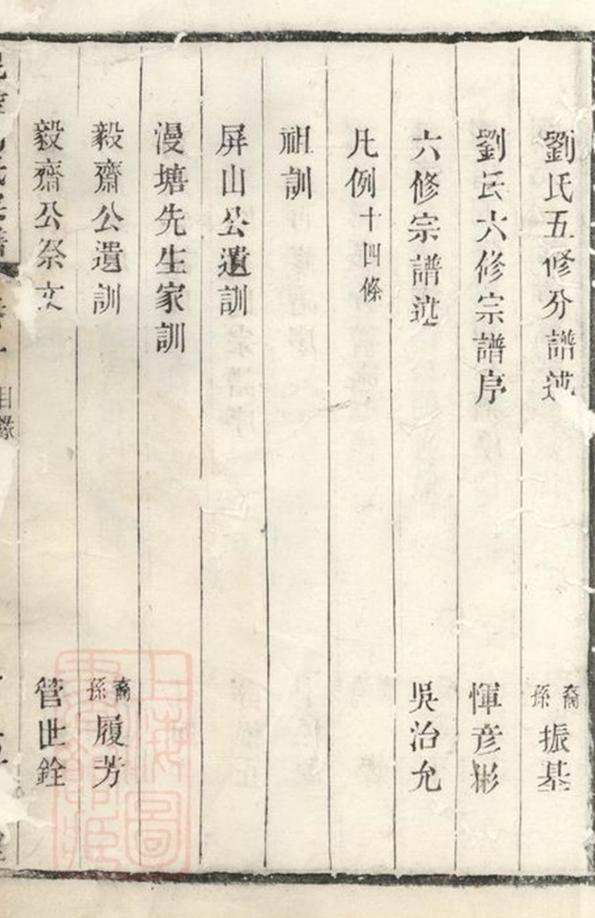 劉氏五修分譜述 裔孫振基
劉氏六修宗譜序 惲彥彬
六修宗譜述 吳治允
凡例十四條
祖訓
屏山公遺訓
漫塘先生家訓
毅齋公遺訓 裔孫履芳
毅齋公祭文 管世銓
目錄